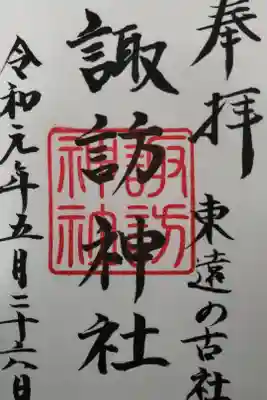 奉拝
東遠の古社
諏訪神社
諏訪神社
令和元年五月二十六日